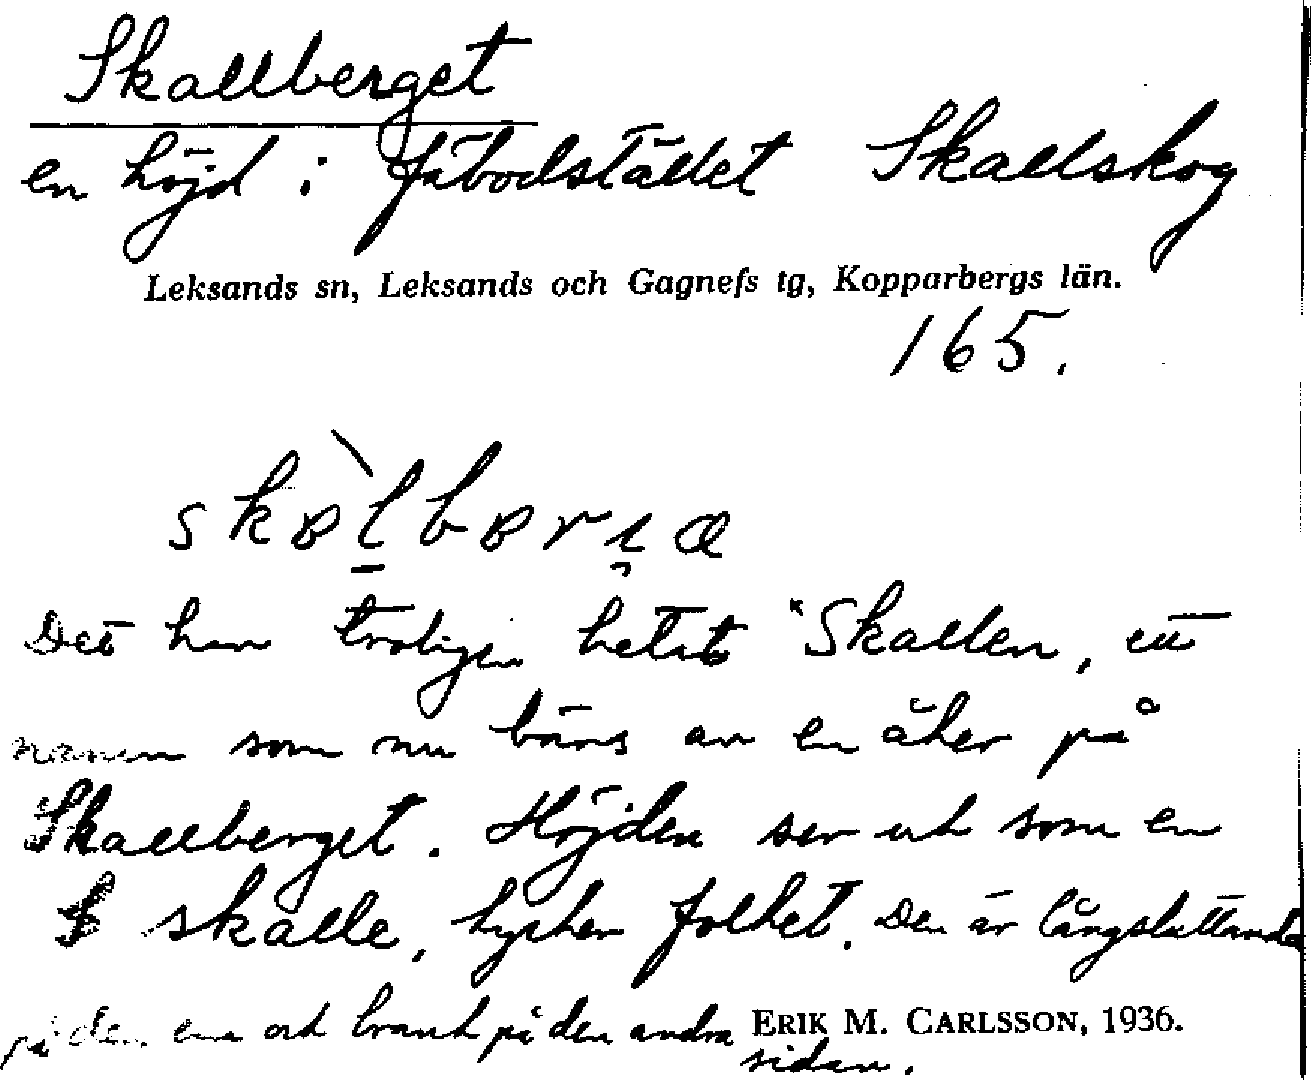 Skallberget
en höjd i fäbodstället Skallskog
Leksands sn, Leksands och Gagnefs tg, Kopparbergs län.
165.
Det har troligen hetat "Skallen, ett
namn som nu bärs av en åker på
Skallberget. Höjden ser ut som en
skalle, tycker folket. Den är långsluttande
på den ena och brant på den andra
ERIK M. CARLSSON, 1936.
sidan.